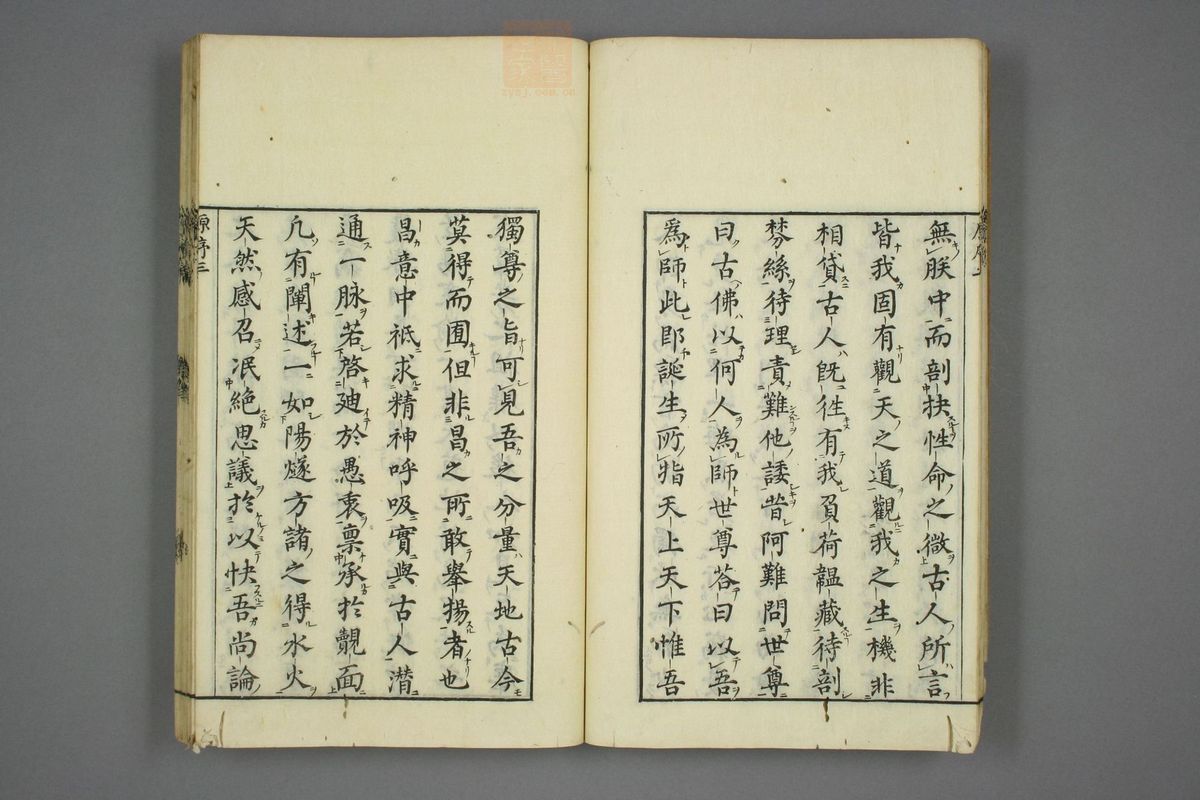 無朕中而剖抉性命之微古人所言
皆我固有觀天之道觀我之生機非
相貸古人既徃有我負荷韞藏待剖
棼絲待理責難他諉昔阿難問世尊
曰古佛以何人為師世尊荅曰以吾
爲師此卽誕生所指天上天下惟吾
獨尊之旨可見吾之分量天地古今
莫得而囿但非昌之所敢舉揚者也
昌意中祇求精神呼吸實與古人潛
通一脉若啓廸於愚衷禀承於覿面
凢有闡述一如陽燧方諸之得水火
天然感召泯絶思議於以快吾尚論
原序三
zysj.com.cn